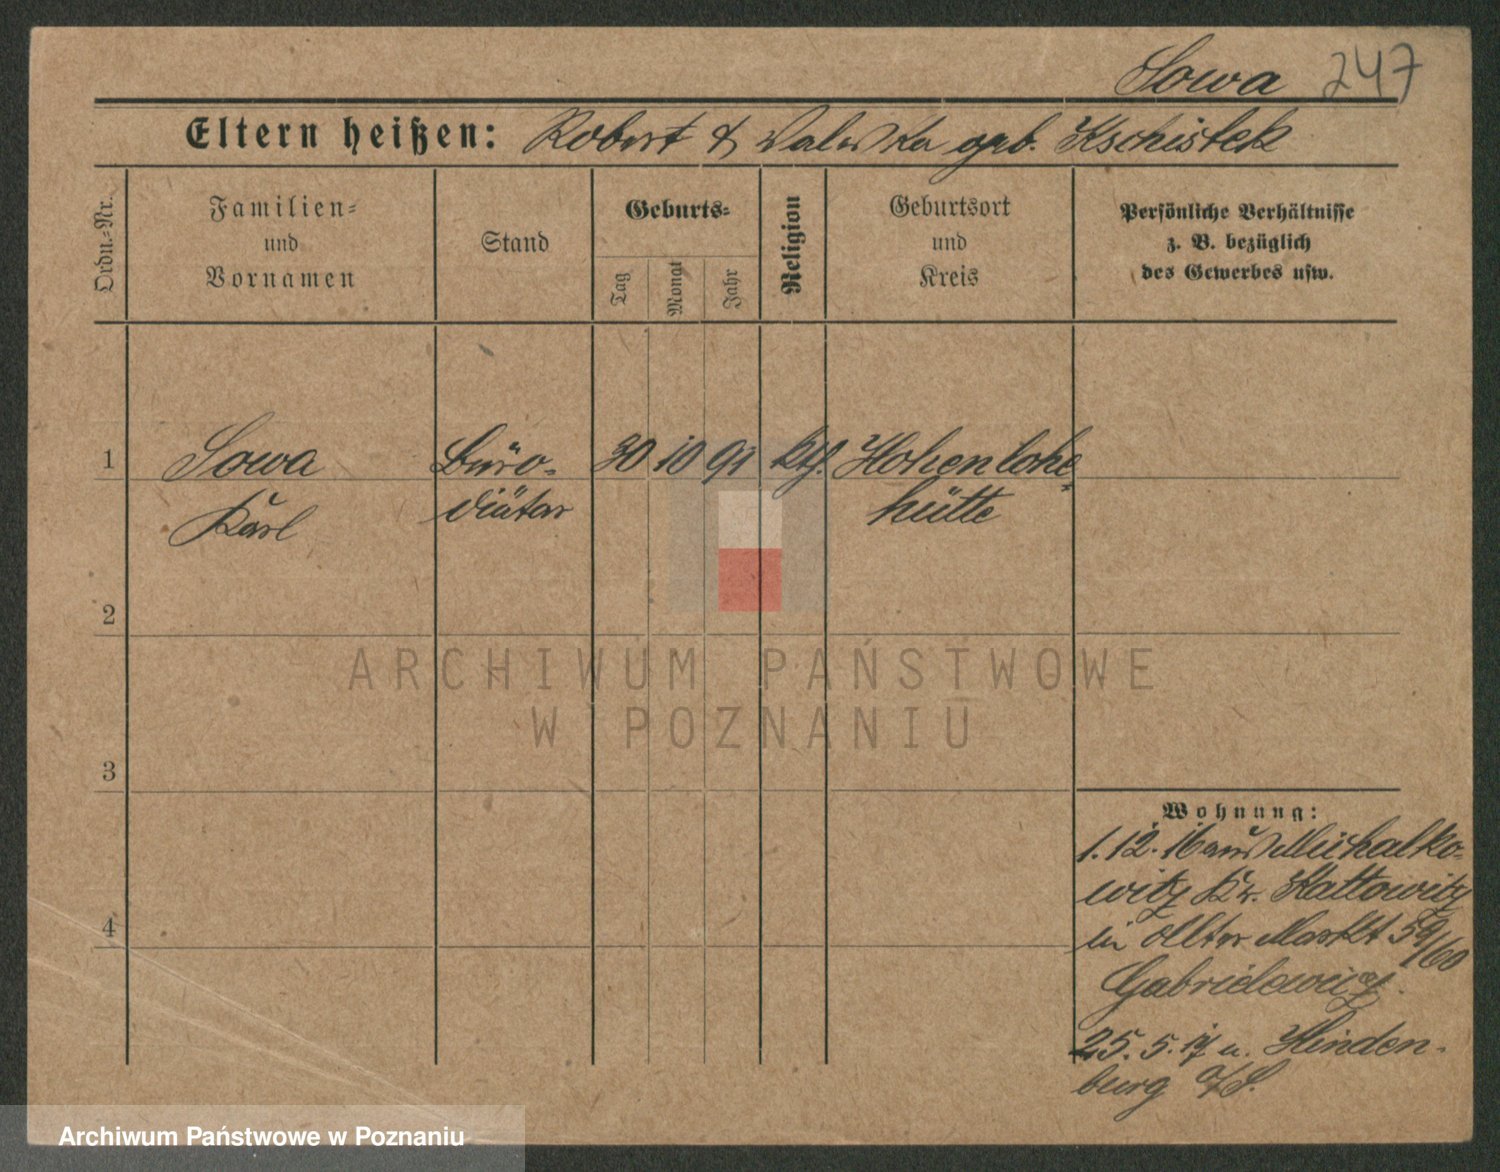 Sowa 247
Eltern heißen: Robert & Valeska geb. Kschistek
Ordn.-Nr.
Familien-
und
Vornamen
Stand
Geburts-
Tag
Monat
Jahr
Religion
Geburtsort
und
Kreis
Persönliche Verhältnisse
z. B. bezüglich
des Gewerbes usw.
1 Sowa Büro- 30 10 91 kth. Hohenlohe-
Karl diätar hütte
2
ARCHIWUM PAŃSTWOWE
W POZNANIU
3
Wohnung:
1.12.16 aus Michalko-
witz Kr. Kattowitz
in Alter Markt 59/60
4
Gabrielewicz.
25.5.17 n. Hinden-
burg O/S.
Archiwum Państwowe w Poznaniu